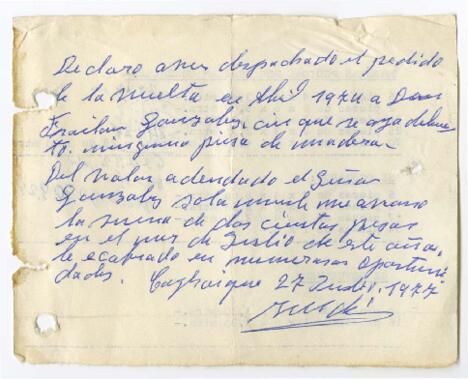 Declaro aver despachado el pedido
de la vuelta en Abril 1974 a Don
Froilan Gonzales, sin que se aya debuel
to. ninguna piesa de madera.
Del valor adeudado el Señor
Gonzales sola mente me avono
la suma de dos cientos pesos
en el mes de Julio de este año.
le e cobrado en numerosas oportuni
dades. 27 Junio, 1977